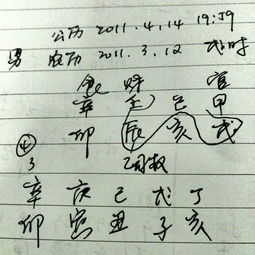 公历 2011.4.14 19:59
男 农历 2011.3.12 戌时
食 财 官
辛 壬 己 甲
卯 辰 亥 戌
④
3
辛 庚 己 戊 丁
卯 寅 丑 子 亥